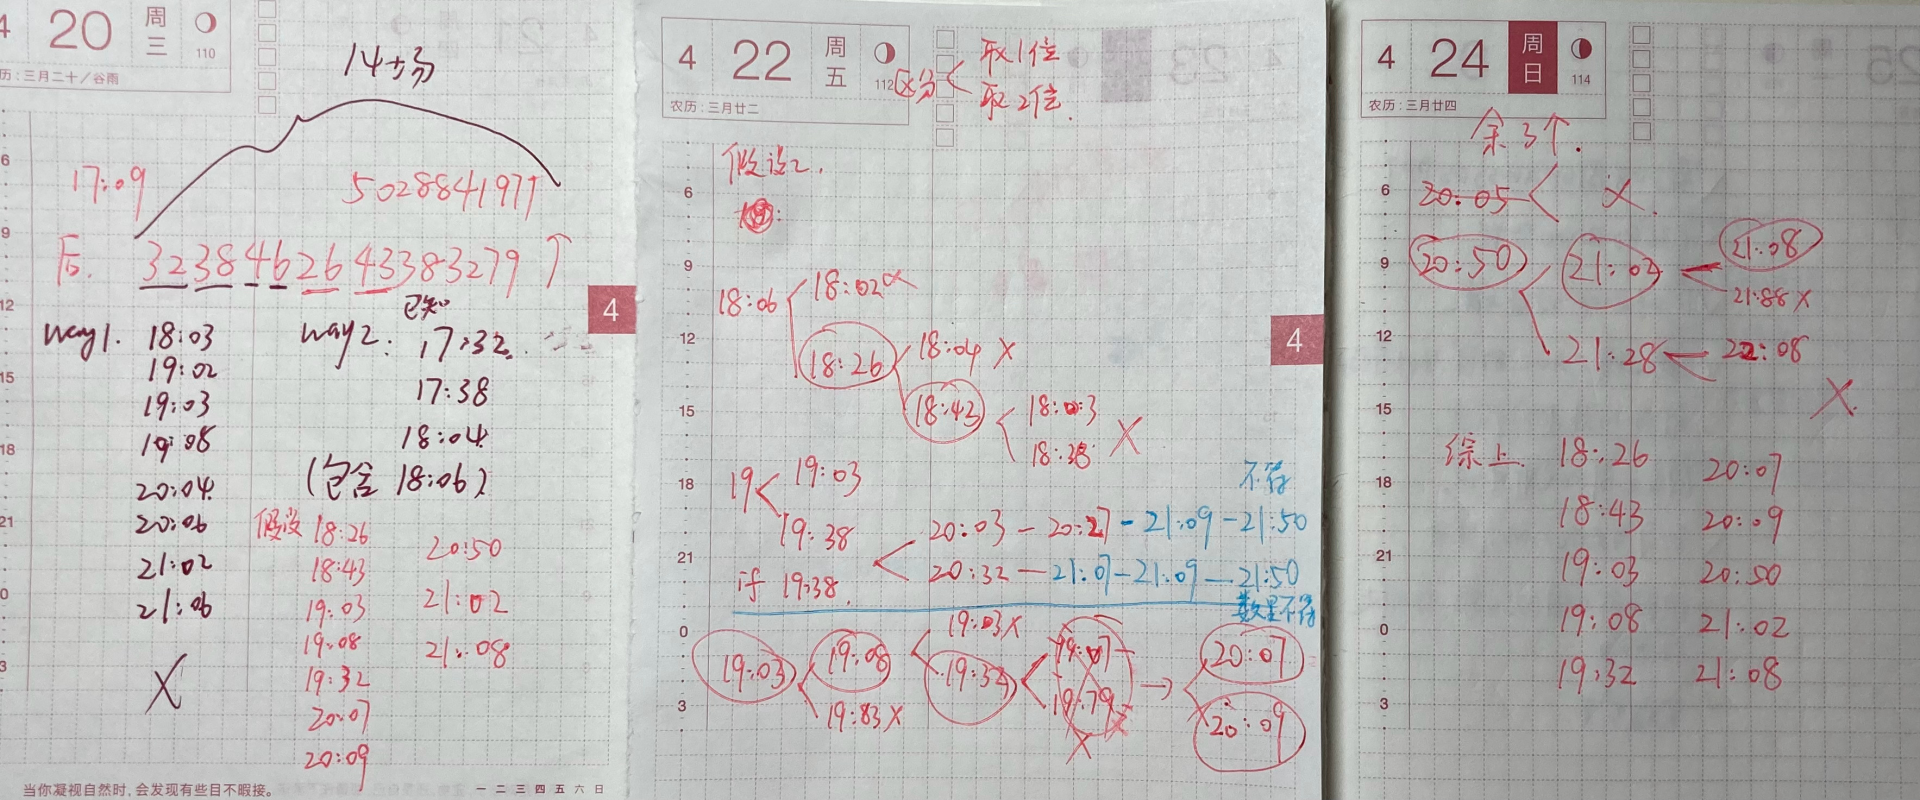 4 20 周三 110
历：三月二十／谷雨
14场
17:09
5028841971
后. 3238462643383279 ↑
已知
way1. 18:03
19:02
19:03
19:08
20:04
20:06
21:02
21:06
X
way2: 17:32.
17:38
18:04
(包含 18:06)
假设 18:26
18:43
19:03
19:08
19:32
20:07
20:09
20:50
21:02
21:08
4
当你凝视自然时，会发现有些目不暇接。
一 二 三 四 五 六 日
4 22 周五 112
农历：三月廿二
区分 取1位
取2位.
假设2.
18:06 18:02 X
18:26 18:04 X
18:43 18:03
18:38 X
19 19:03
19:38
不符
20:03 - 20:27 - 21:09 - 21:50
if 19:38. 20:32 - 21:07 - 21:09 - 21:50
数量不符
19:03 19:08 19:03 X
19:83 X
19:32 19:07
19:79 X
20:07
20:09
4
4 24 周日 114
农历：三月廿四
余3个.
20:05 X.
20:50 21:02 21:08
21:88 X
21:28 22:08
X
综上. 18:26 20:07
18:43 20:09
19:03 20:50
19:08 21:02
19:32 21:08
6
9
12
15
18
21
0
3
6
9
12
15
18
21
0
3
6
9
12
15
18
21
0
3